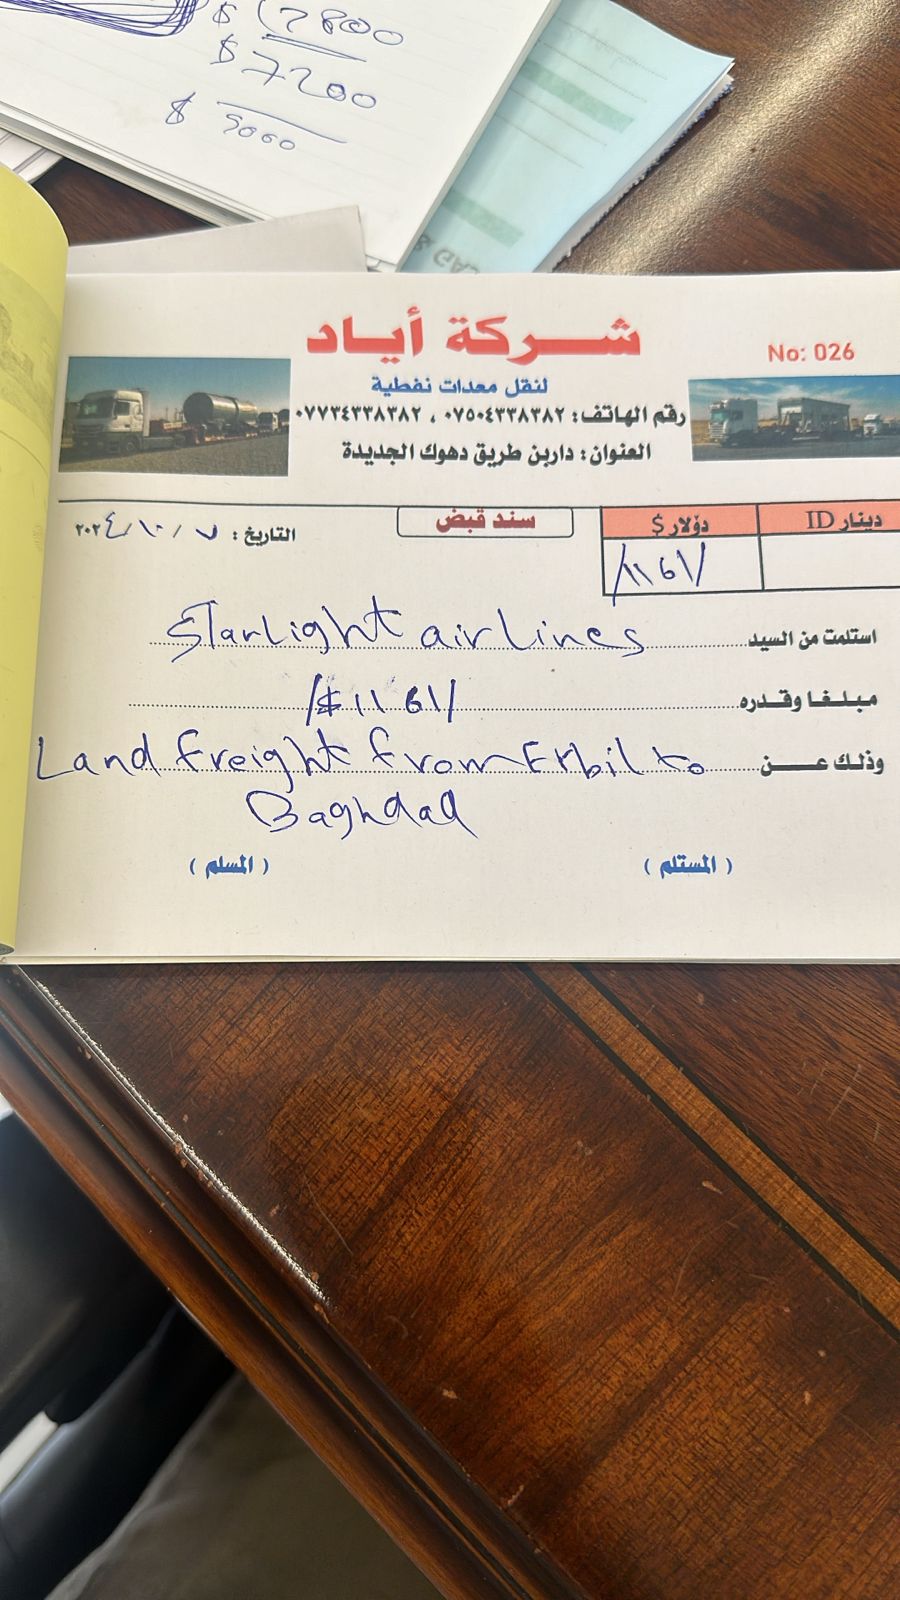 $ 7800
$ 7200
$ 5000
شركة أياد
No: 026
لنقل معدات نفطية
رقم الهاتف: ٠٧٥٠٤٣٣٨٣٨٢ ، ٠٧٧٣٤٣٣٨٣٨٢
العنوان: دارين طريق دهوك الجديدة
دينار ID
دۆلار $
سند قبض
التاريخ: ٧ / ١٠ / ٢٠٢٤
/1161/
استلمت من السيد Starlight airlines
مبلغا وقدره /$1161/
وذلك عن Land freight from Erbil to
Baghdad
( المستلم )
( المسلم )